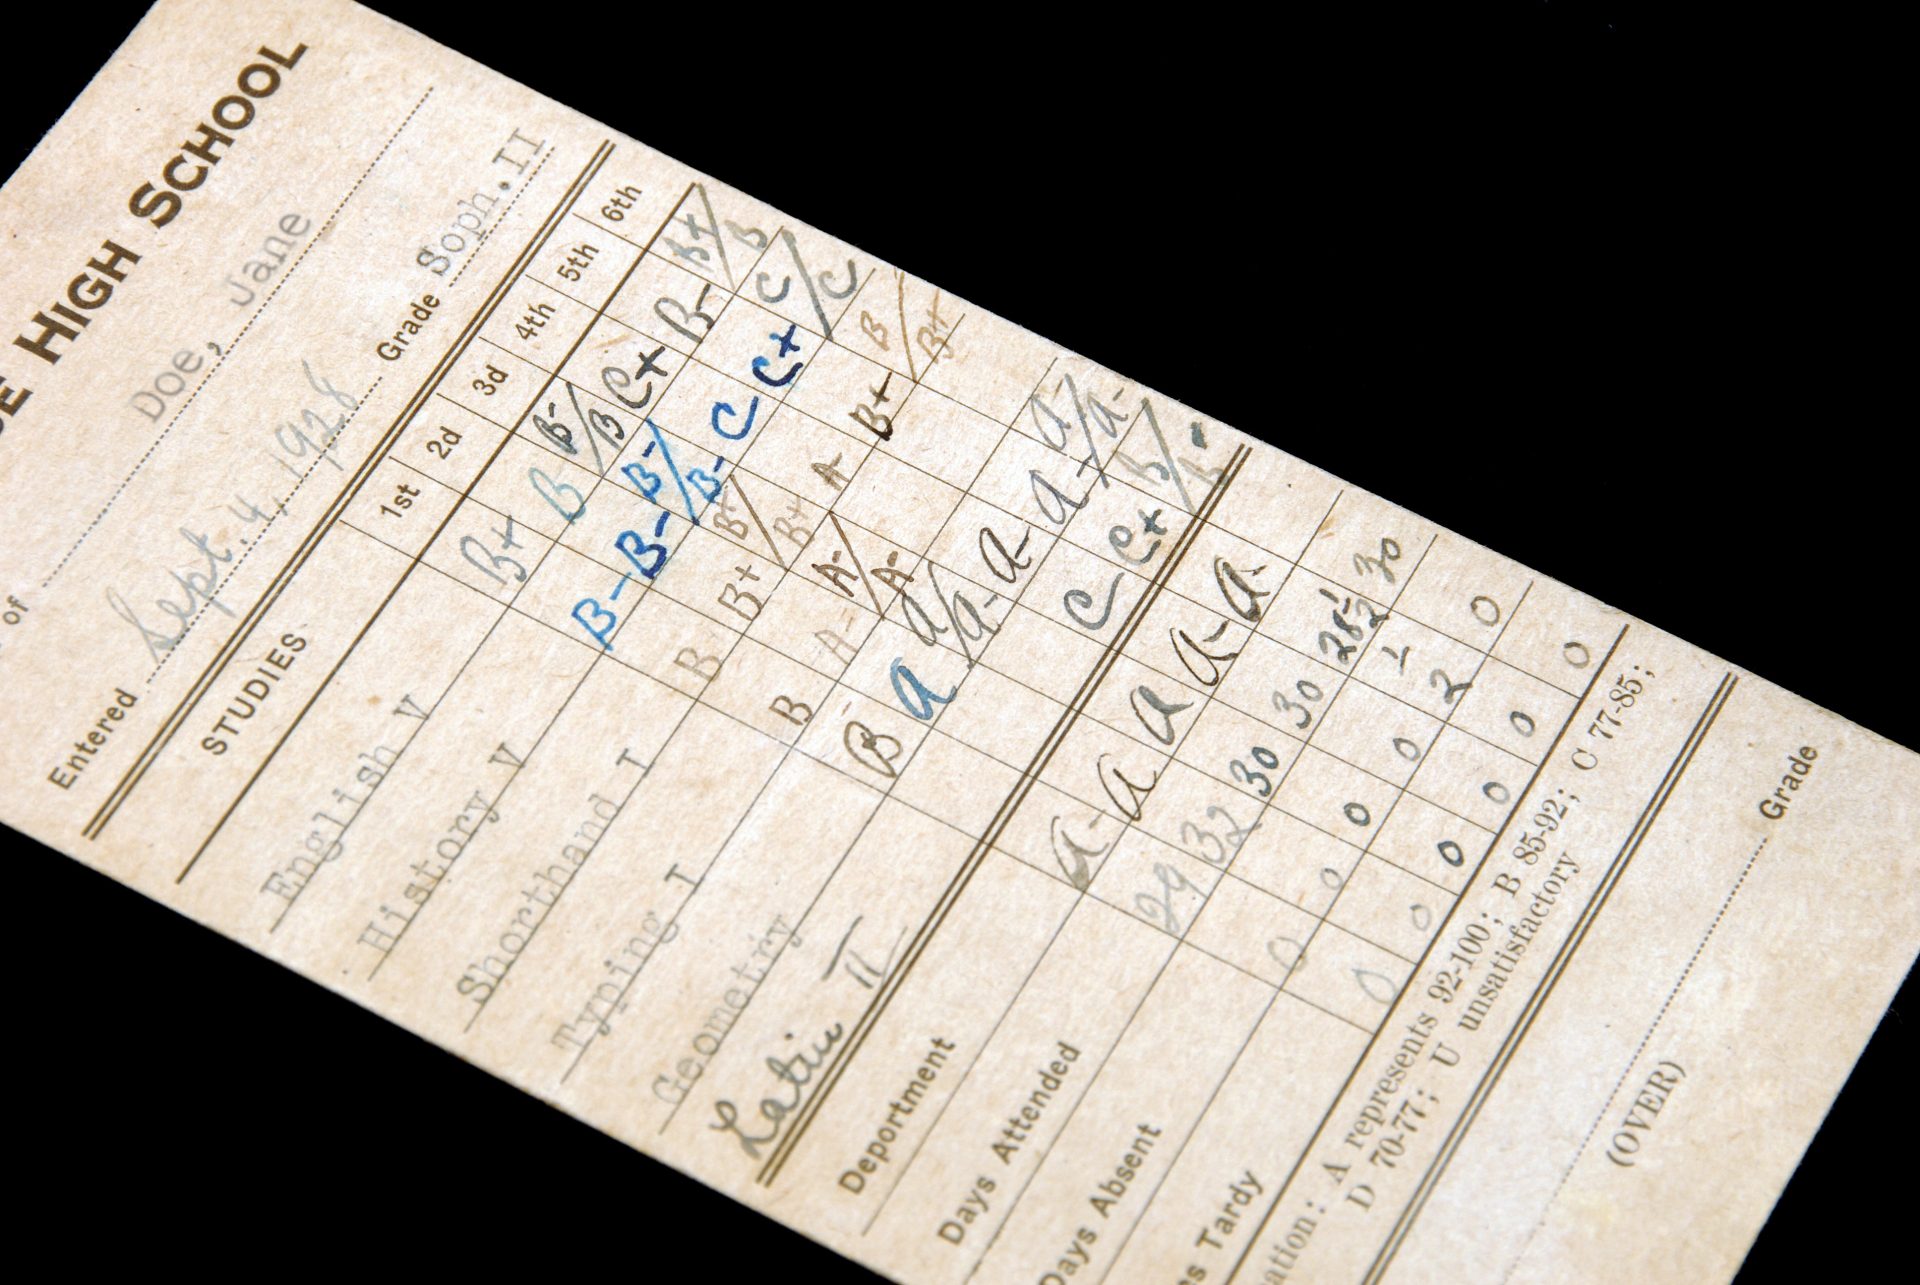 E HIGH SCHOOL
of Doe, Jane
Entered Sept. 4, 1928 Grade Soph. II
STUDIES 1st 2d 3d 4th 5th 6th
English V B+ B B-/B C+ B- B+/B
History V B- B- B-/B- C C+ C/C
Shorthand I B B+ B-/B+ A- B+ B/B+
Typing I B A- A-/A-
Geometry B a a/a- a- a- a-/a-
Latin II C C+ B/B-
Deportment a- a a a- a-
Days Attended 29 32 30 30 28½ 30
Days Absent 0 0 0 0 ½ 0
es Tardy 0 0 0 0 0 0
ation: A represents 92-100; B 85-92; C 77-85;
D 70-77; U unsatisfactory
Grade
(OVER)